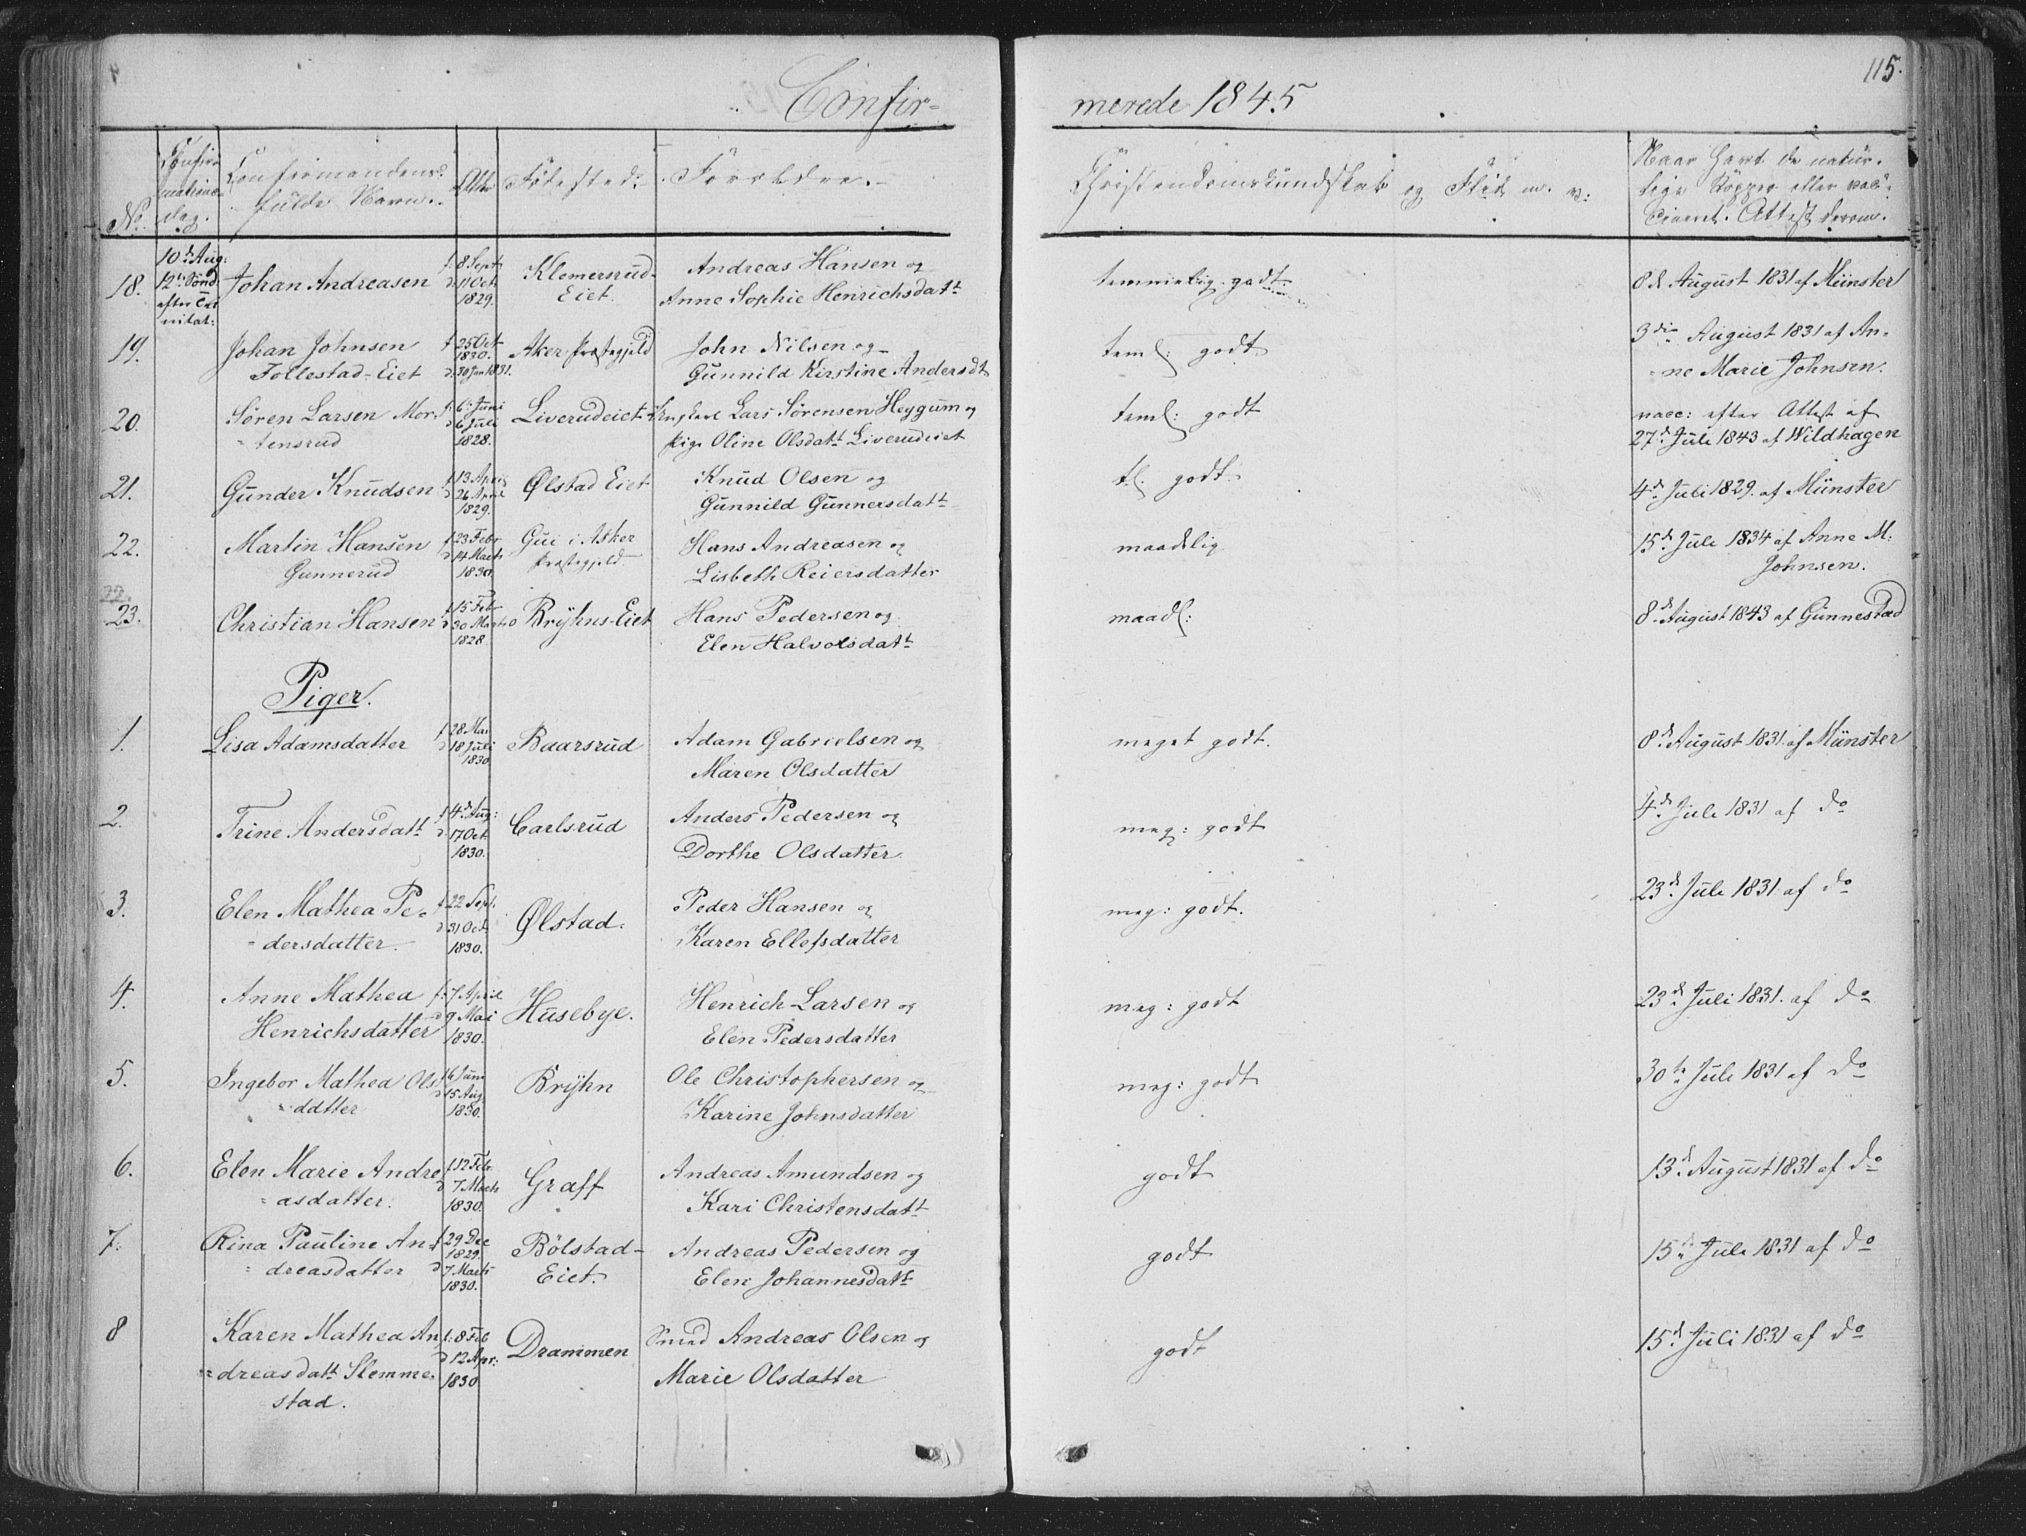 115.
Confir-
merede 1845
No.
Confirmationsdag.
Confirmandens fulde Navn.
Alder
Fødested.
Forældre.
Christendomskundskab og Flid m. v:
Naar havt de natürlige Kopper eller vaccineret. Attest derom.
10de Aug:
12te Sönd
efter Tri
nitat:
18. Johan Andreasen f. 8 Sept d. 11 Oct 1829. Klemersrud-Eiet. Andreas Hansen og
Anne Sophie Henrichsdatt temmelig godt. 8de August 1831 af Münster
19. Johan Johnsen f 25 Oct 1830. d. 30 Jan 1831. Aker Præstegjeld John Nilsen og 3die August 1831 af An-
Follestad-Eiet Gunnild Kirstine Andersdt teml: godt = ne Marie Johnsen.
20. Søren Larsen Mor- f. 6 Juni d 6 Juli 1828. Liverudeiet Ungkarl Lars Sørensen Heggum og teml: godt vacc: efter Attest af
= tensrud Pige Oline Olsdatt Liverudeiet 27de Juli 1843 af Wildhagen
21. Gunder Knudsen f 13 April d 26 April 1829. Ølstad Eiet Knud Olsen og tl. godt. 4de Juli 1829. af Münster
Gunnild Gunnersdatt
22. Martin Hansen f 23 Febr d 14 Marts 1830. Gui i Asker Hans Andreasen og maadelig 15de Juli 1834 af Anne M:
Gunnerud Præstegjeld Lisbeth Reiersdatter Johnsen.
22.
23. Christian Hansen f 15 Feb d 30 Marts 1828 Bryhns-Eiet Hans Pedersen og maadl: 8de August 1843 af Gunnestad
Elen Halvolsdatt
Piger.
1. Lisa Adamsdatter f 28 Mai d 18 Juli 1830 Baarsrud Adam Gabrielsen og meget godt. 8de August 1831. af Münster
Maren Olsdatter
2. Trine Andersdatt f 4de Aug: d. 17 Oct. 1830. Carlsrud Anders Pedersen og meg: godt 4de Juli 1831 af do
Dorthe Olsdatter
3. Elen Mathea Pe- f 22 Sept. d 31 Oct. 1830. Ølstad. Peder Hansen og meg: godt. 23de Juli 1831 af do
= dersdatter. Karen Ellefsdatter
4. Anne Mathea f. 7 April d 9 Mai 1830. Husebye. Henrich Larsen og meg: godt 23de Juli 1831. af do
Henrichsdatter Elen Pedersdatter
5. Ingebor Mathea Ols f 6 Juni d 15 Aug 1830. Bryhn Ole Christophersen og meg: godt 30te Juli 1831 af do
= ddtter Karine Johnsdatter
6. Elen Marie Andre f 12 Feb. d 7 Marts 1830. Graff Andreas Amundsen og godt 13de August 1831 af do
= asdatter. Kari Christensdatt
7. Rina Pauline An- f 29 Dec 1829. d 7 Marts 1830. Bølstad- Andreas Pedersen og godt 15de Juli 1831 af do
= dreasdatter Eiet. Elen Johannesdatt
8 Karen Mathea An f: 8 Feb d 12 Apr: 1830 Drammen Smed Andreas Olsen og godt 15de Juli 1831 af do
= dreasdatt Slemme- Marie Olsdatter
stad.